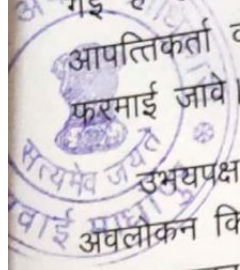 गई है
आपत्तिकर्ता
फरमाई जावे।
सत्यमेव जयते
उभयपक्ष
वाई माधोपुर
अवलोकन कि